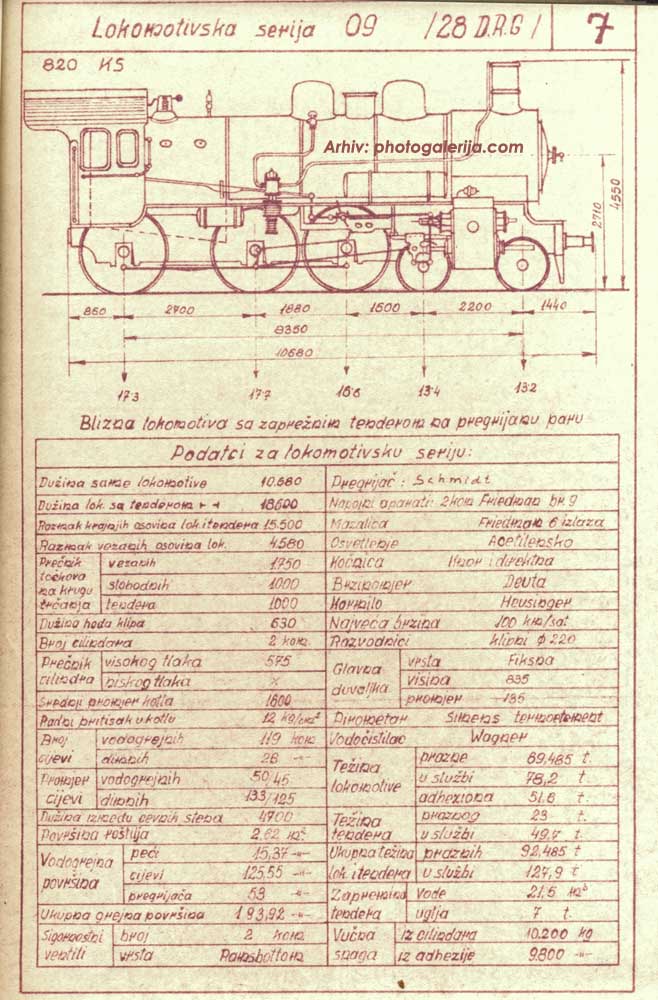 Lokomotivska serija 09 /28 D.R.G/ 7
820 KS
Arhiv: photogalerija.com
4550
2710
850 2700 1880 1500 2200 1440
8350
10680
17·3 17·7 16·6 13·4 13·2
Blizna lokomotiva sa zaprežnim tenderom na pregrijanu paru
Podatci za lokomotivsku seriju:
Dužina same lokomotive 10.680
Dužina lok. sa tenderom 18.500
Razmak krajnjih osovina lok. i tendera 15.500
Razmak vezanih osovina lok. 4.580
Prečnik točkova na krugu trčanja
vezanih 1750
slobodnih 1000
tendera 1000
Dužina hoda klipa 630
Broj cilindara 2 kom.
Prečnik cilindra
visokog tlaka 575
niskog tlaka x
Srednji promjer kotla 1600
Radni pritisak u kotlu 12 kg/cm²
Broj cijevi
vodogrejnih 119 kom
dimnih 26 -"-
Promjer cijevi
vodogrejnih 50/45
dimnih 133/125
Dužina između cevnih stena 4700
Površina roštilja 2,62 m²
Vodogrejna površina
peći 15,37 -"-
cijevi 125,55 -"-
pregrijača 53 -"-
Ukupna grejna površina 193,92 -"-
Sigurnostni ventili
broj 2 kom.
vrsta Ramsbottom
Pregrijač: Schmidt
Napojni aparati: 2 kom Friedman br. 9
Mazalica Friedman 6 izlaza
Osvetlenje Acetilensko
Kočnica Knor i direktna
Brzinomjer Deuta
Kormilo Heusinger
Najveća brzina 100 km/sat
Razvodnici klipni φ 220
Glavna duvaljka
vrsta Fiksna
visina 835
promjer 135
Pirometar Simens termoelement
Vodočistilac Wagner
Težina lokomotive
prazne 69,485 t.
u službi 78,2 t.
adheziona 51,6 t.
Težina tendera
praznog 23 t.
u službi 49,7 t.
Ukupna težina lok. i tendera
praznih 92,485 t
u službi 127,9 t.
Zapremina tendera
vode 21,5 m³
uglja 7 t.
Vučna snaga
iz cilindara 10.200 kg
iz adhezije 9.800 -"-